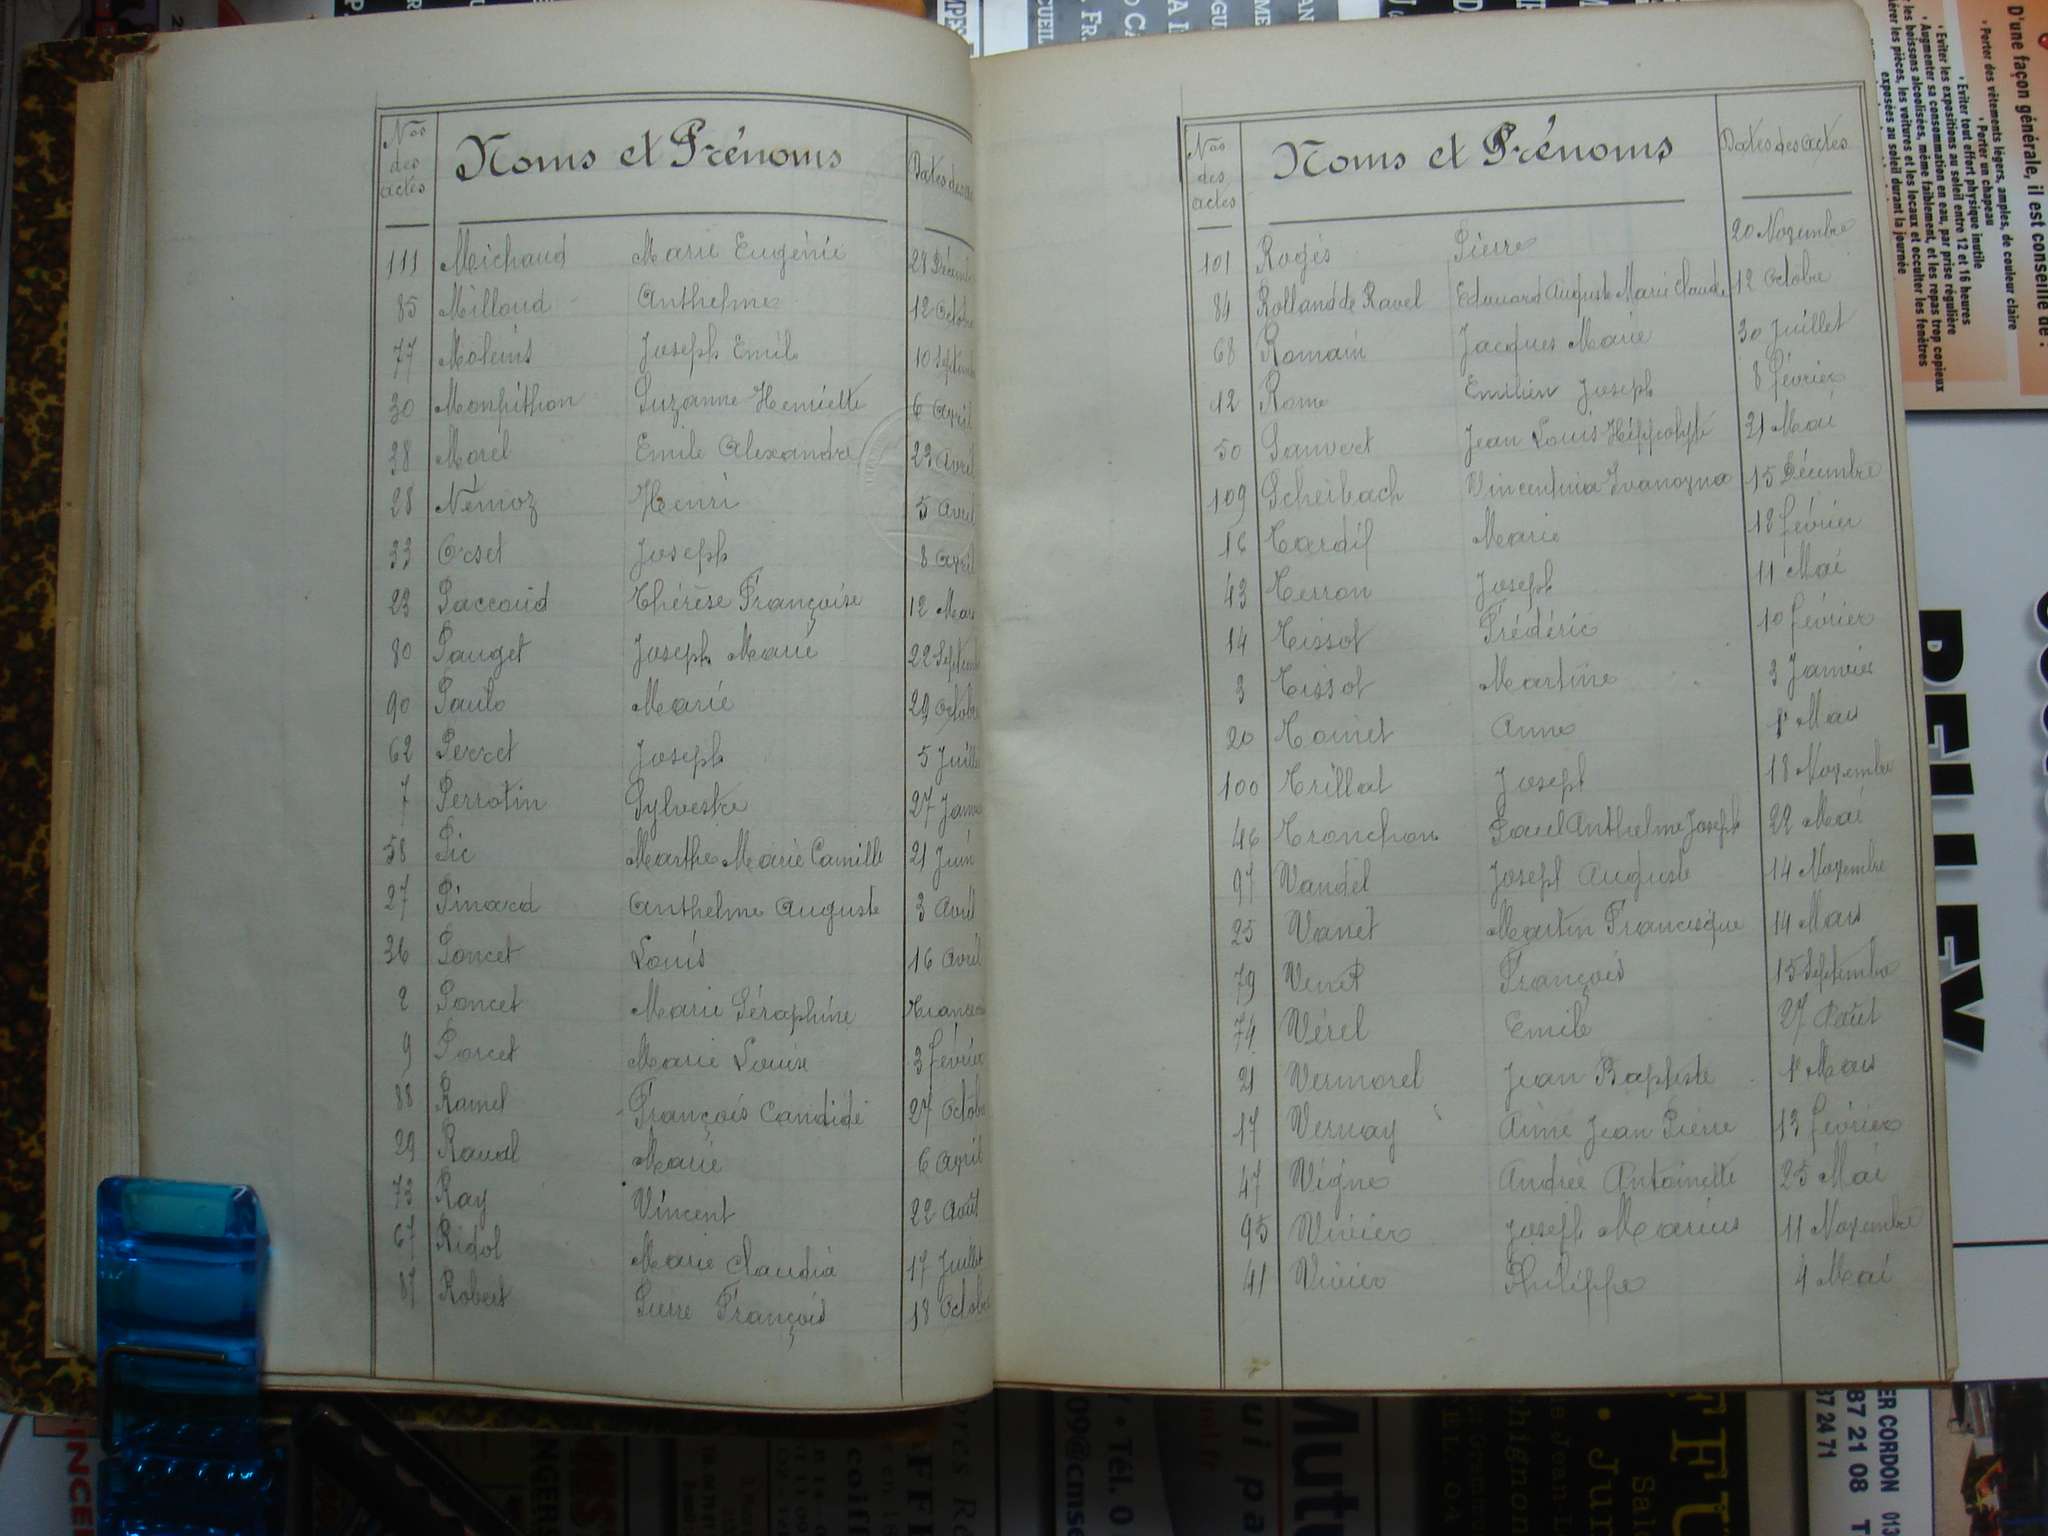 Nos des actes Noms et Prénoms
111 Michaud Marie Eugénie
85 Milloud Anthelme 12 Octobre
77 Moleins Joseph Emile 10
30 Monpithon Suzanne Henriette 6 Avril
38 Morel Emile Alexandre 23 Avril
28 Némoz Henri 5 Avril
33 Orset Joseph 8 Avril
23 Paccoud Thérèse Françoise 12
80 Pauget Joseph Marie 22
90 Paulo Marie 29 Octobre
62 Perret Joseph 5
7 Perrotin Sylvestre 27
58 Pic Marthe Marie Camille 21 Juin
27 Pinard Anthelme Auguste 3 Avril
36 Poncet Louis 16 Avril
2 Poncet Marie Séraphine
9 Porcet Marie Louise 3 février
88 Ramel François Candide 27
29 Raval Marie 6 Avril
73 Ray Vincent 22 Août
67 Ridol Marie Claudia 17 Juillet
87 Robert Pierre François 18
Nos des actes Noms et Prénoms Dates des actes
101 Rogés Pierre 20 Novembre
84 Rolland de Ravel Edouard Auguste Marie Claude 12 Octobre
68 Romain Jacques Marie 30 Juillet
12 Rome Emilien Joseph 8 février
50 Sauvert Jean Louis Hippolyte 21 Mai
109 Scheibach 15 Décembre
16 Tardif Marie 12 février
43 Terron Joseph 11 Mai
14 Tissot Frédéric 10 février
3 Tissot Martine 3 Janvier
20 Toinet Anne 1r Mars
100 Trillat Joseph 18 Novembre
46 Tronchon Paul Anthelme Joseph 22 Mai
97 Vandel Joseph Auguste 14 Novembre
25 Vanet Martin Francisque 14 Mars
79 Venet François 15 Septembre
74 Vérel Emile 27 Août
21 Vermorel Jean Baptiste 1r Mars
17 Vernay Aimé Jean Pierre 13 février
47 Vigne Andrée Antoinette 25 Mai
95 Vivier Joseph Marius 11 Novembre
41 Vivier Philippe 4 Mai
D'une façon générale, il est conseillé de :
• Porter des vêtements légers, amples, de couleur claire
• Porter un chapeau
• Eviter tout effort physique inutile
• Eviter les expositions au soleil entre 12 et 16 heures
• Augmenter sa consommation en eau, par prise régulière
les boissons alcoolisées, même faiblement, et les repas trop copieux
les pièces, les voitures et les locaux et occulter les fenêtres
exposées au soleil durant la journée
BELLEY
CORDON
87 21 08
87 24 71